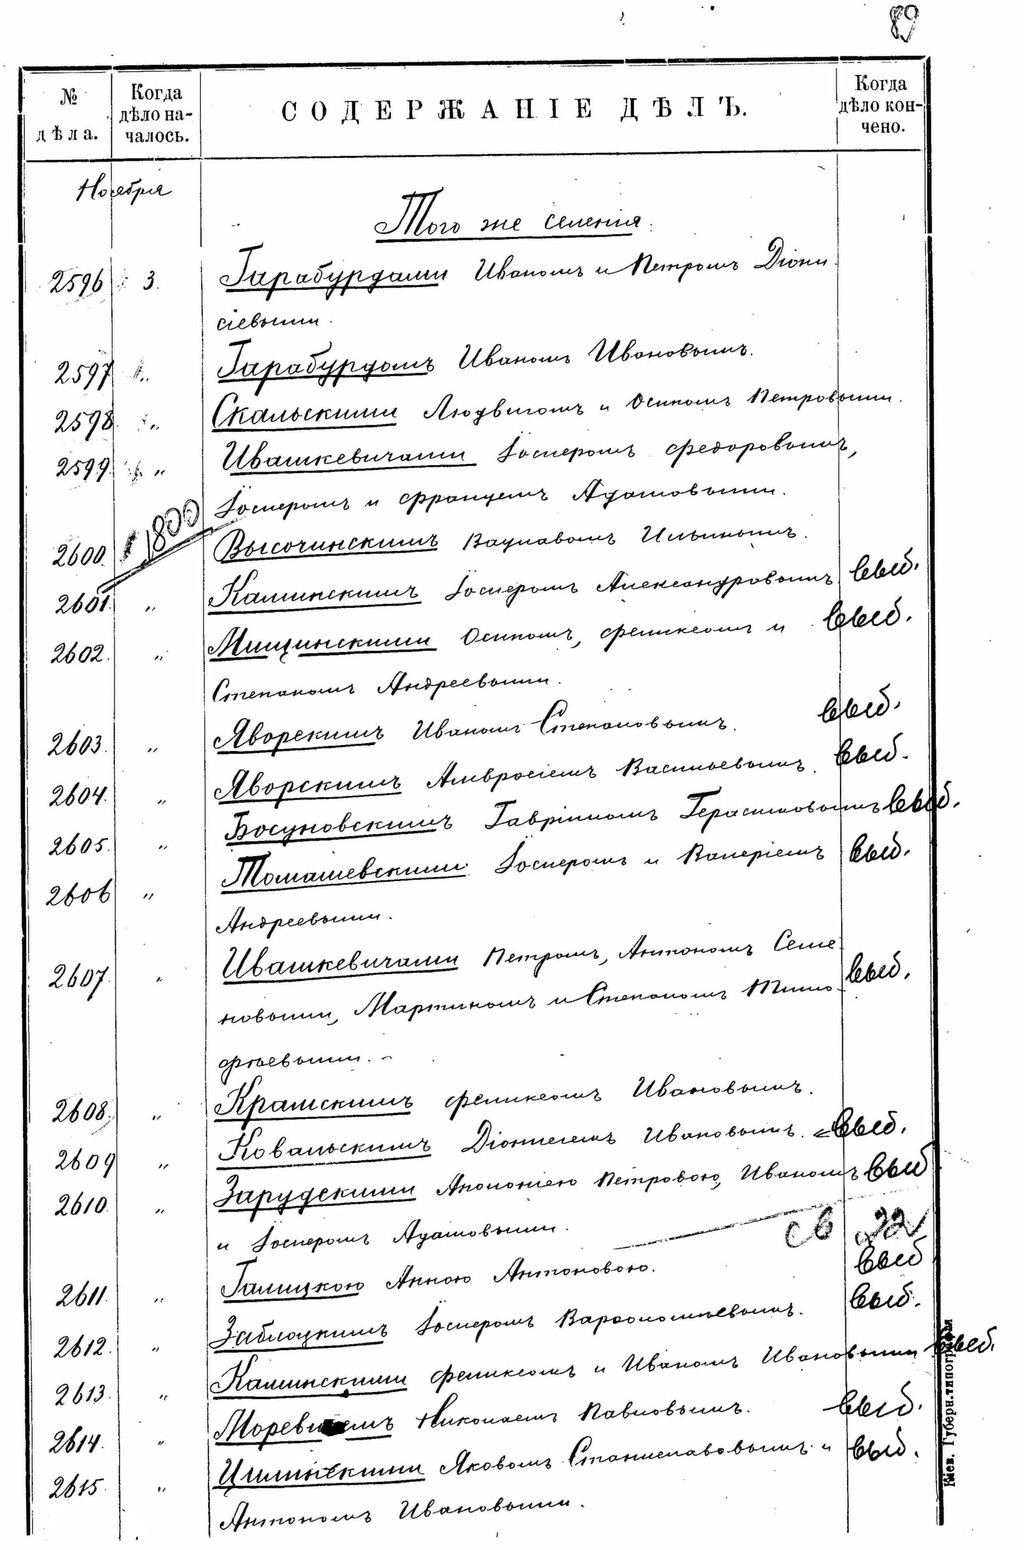 89
№ дѣла.
Когда дѣло началось.
СОДЕРЖАНІЕ ДѢЛЪ.
Когда дѣло кончено.
Ноября
Того же селенія.
2596 3. Гарабурдами Иваномъ и Петромъ Діони
сіевыми.
2597 " Гарабурдомъ Иваномъ Ивановымъ.
2598 " Скальскими Людвигомъ и Осипомъ Петровыми.
2599 " Ивашкевичами Іосифомъ Федоровымъ,
Іосифомъ и Францемъ Адамовыми.
1800
2600 Височинскимъ Вацлавомъ Ильинымъ.
2601 " Каминскимъ Іосифомъ Александровымъ выб.
2602. " Мищинскими Осипомъ, Феликсомъ и выб.
Степаномъ Андреевыми.
2603. " Яворскимъ Иваномъ Степановымъ. выб.
2604. " Яворскимъ Амвросіемъ Васильевымъ. выб.
2605. " Босуновскимъ Гавріиломъ Герасимовымъ выб.
2606 " Томашевскими Іосифомъ и Валеріемъ выб.
Андреевыми.
2607 " Ивашкевичами Петромъ, Антономъ Семе
новыми, Мартиномъ и Степаномъ Тимо- выб.
фѣевыми.
2608. " Крамскимъ Феликсомъ Ивановымъ.
2609 " Ковальскимъ Діонисіемъ Ивановымъ. выб.
2610. " Зарудскими Аполоніею Петровою, Иваномъ выб
и Іосифомъ Адамовыми.
св 22
2611. " Галицкою Анною Антоновою. выб
2612. " Заблоцкимъ Іосифомъ Варфоломѣевымъ. выб.
2613 " Каминскими Феликсомъ и Иваномъ Ивановыми выб.
2614. " Николаемъ Павловымъ. выб.
2615 " Цилинскими Яковомъ Станиславовымъ и выб.
Антономъ Ивановыми.
Кіев. Губерн. типографія